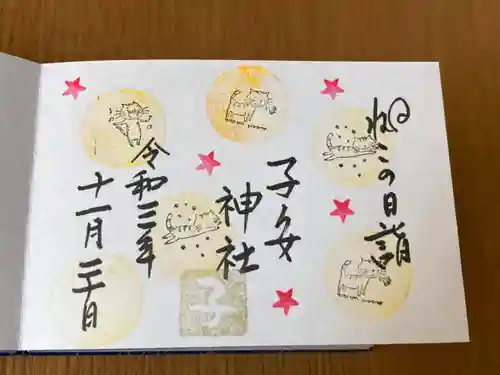 ねこの日詣
子之女
神社
令和三年
十一月二十日